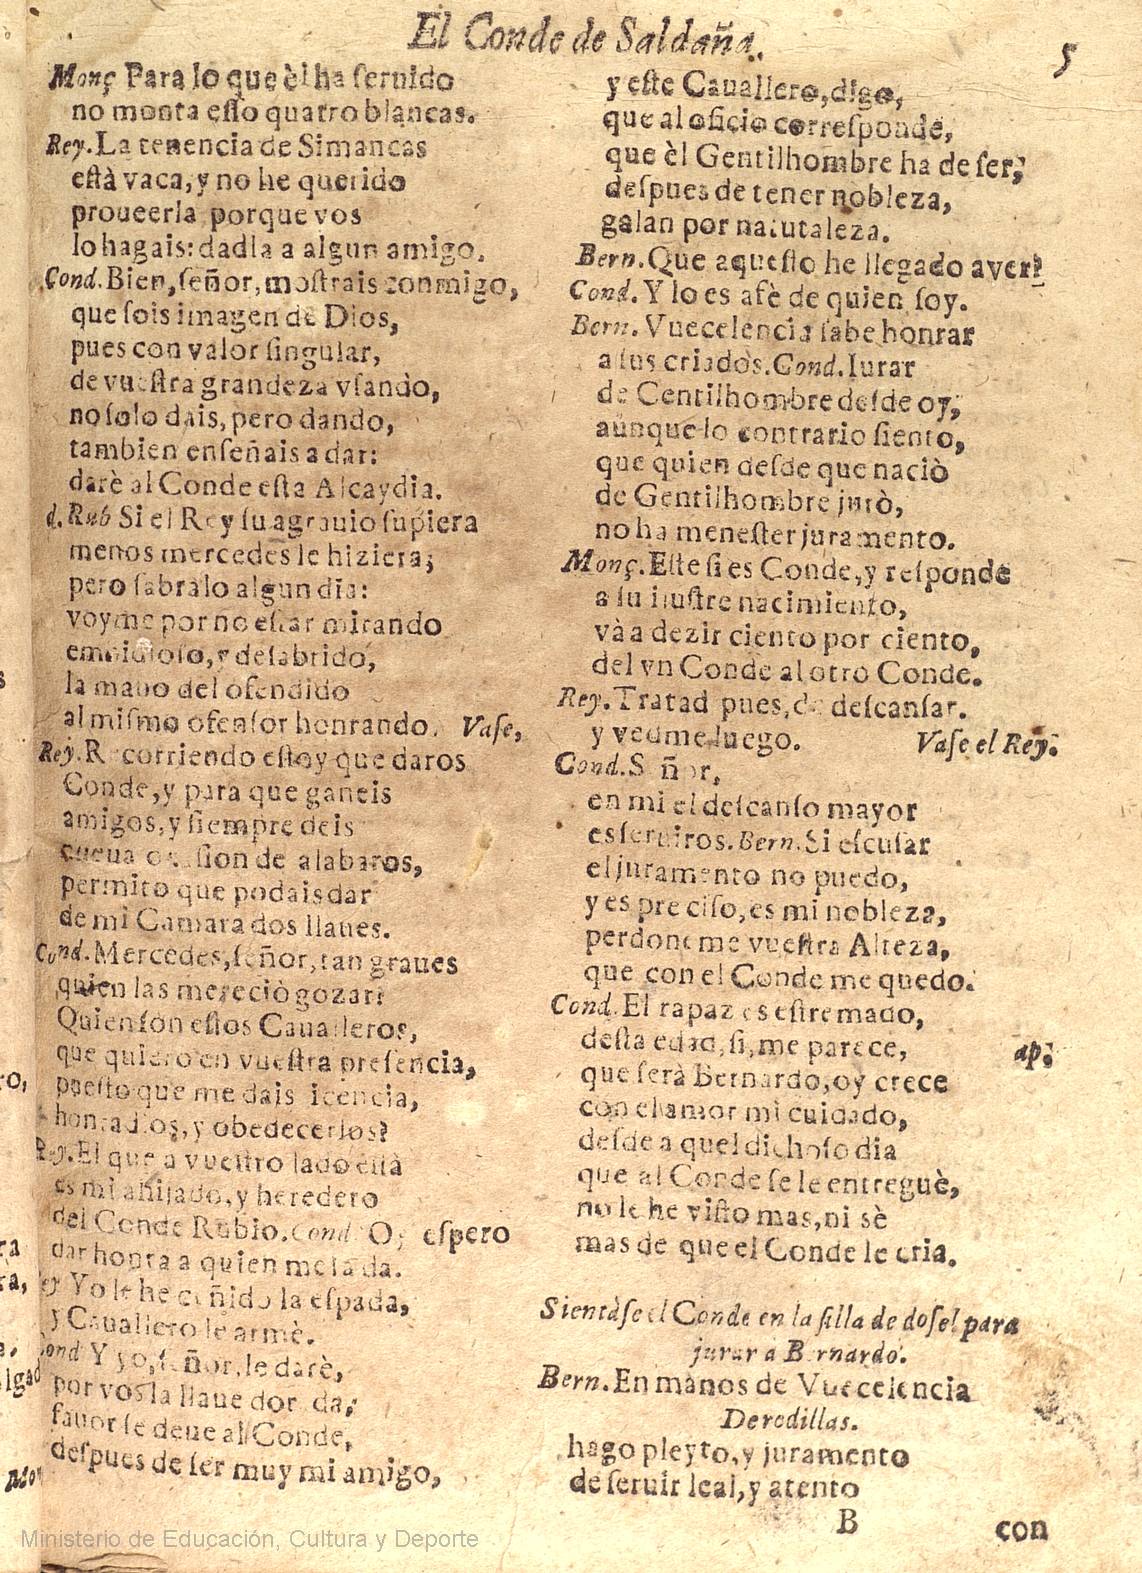 El Conde de Saldaña.
5
Monç Para lo que èl ha seruido
no monta esto quatro blancas.
Rey. La tenencia de Simancas
està vaca, y no he querido
proueerla porque vos
lo hagais: dadla a algun amigo.
Cond. Bien, señor, mostrais conmigo,
que sois imagen de Dios,
pues con valor singular,
de vuestra grandeza vsando,
no solo dais, pero dando,
tambien enseñais a dar:
darè al Conde esta Alcaydia.
d. Rub Si el Rey su agrauio supiera
menos mercedes le hiziera;
pero sabralo algun dia:
voyme por no estar mirando
embidioso, y desabrido,
la mano del ofendido
al mismo ofensor honrando. Vase,
Rey. Recorriendo estoy que daros
Conde, y para que ganeis
amigos, y siempre deis
nueua ocasion de alabaros,
permito que podais dar
de mi Camara dos llaues.
Cond. Mercedes, señor, tan graues
quien las mereciò gozar?
Quien son estos Caualleros,
que quiero en vuestra presencia,
puesto que me dais licencia,
honrallos, y obedecerlos?
Rey. El que a vuestro lado està
es mi ahijado, y heredero
del Conde Rubio. Cond Oy espero
dar honra a quien me la da.
ey Yo le he ceñido la espada,
y Cauallero le armè.
Cond Y yo, señor, le darè,
por vos la llaue dorada;
fauor se deue al Conde,
despues de ser muy mi amigo,
y este Cauallero, digo,
que al oficio corresponde,
que èl Gentilhombre ha de ser;
despues de tener nobleza,
galan por natutaleza.
Bern. Que aquesto he llegado a ver?
Cond. Y lo es afè de quien soy.
Bern. Vuecelencia sabe honrar
a sus criados. Cond. Iurar
de Gentilhombre desde oy,
aunque lo contrario siento,
que quien desde que naciò
de Gentilhombre jurò,
no ha menester juramento.
Monç. Este si es Conde, y responde
a su ilustre nacimiento,
và a dezir ciento por ciento,
del vn Conde al otro Conde.
Rey. Tratad pues, de descansar.
y vedme luego. Vase el Rey.
Cond. Señor,
en mi el descanso mayor
es seruiros. Bern. Si escusar
el juramento no puedo,
y es preciso, es mi nobleza,
perdoneme vuestra Alteza,
que con el Conde me quedo.
Cond. El rapaz es estremado,
desta edad, si, me parece, ap.
que serà Bernardo, oy crece
con el amor mi cuidado,
desde aquel dichoso dia
que al Conde se le entreguè,
no le he visto mas, ni sè
mas de que el Conde le cria.
Sientàse el Conde en la silla de dosel para
jurar a Bernardo.
Bern. En manos de Vuecelencia
De rodillas.
hago pleyto, y juramento
de seruir leal, y atento
B
con
Ministerio de Educación, Cultura y Deporte